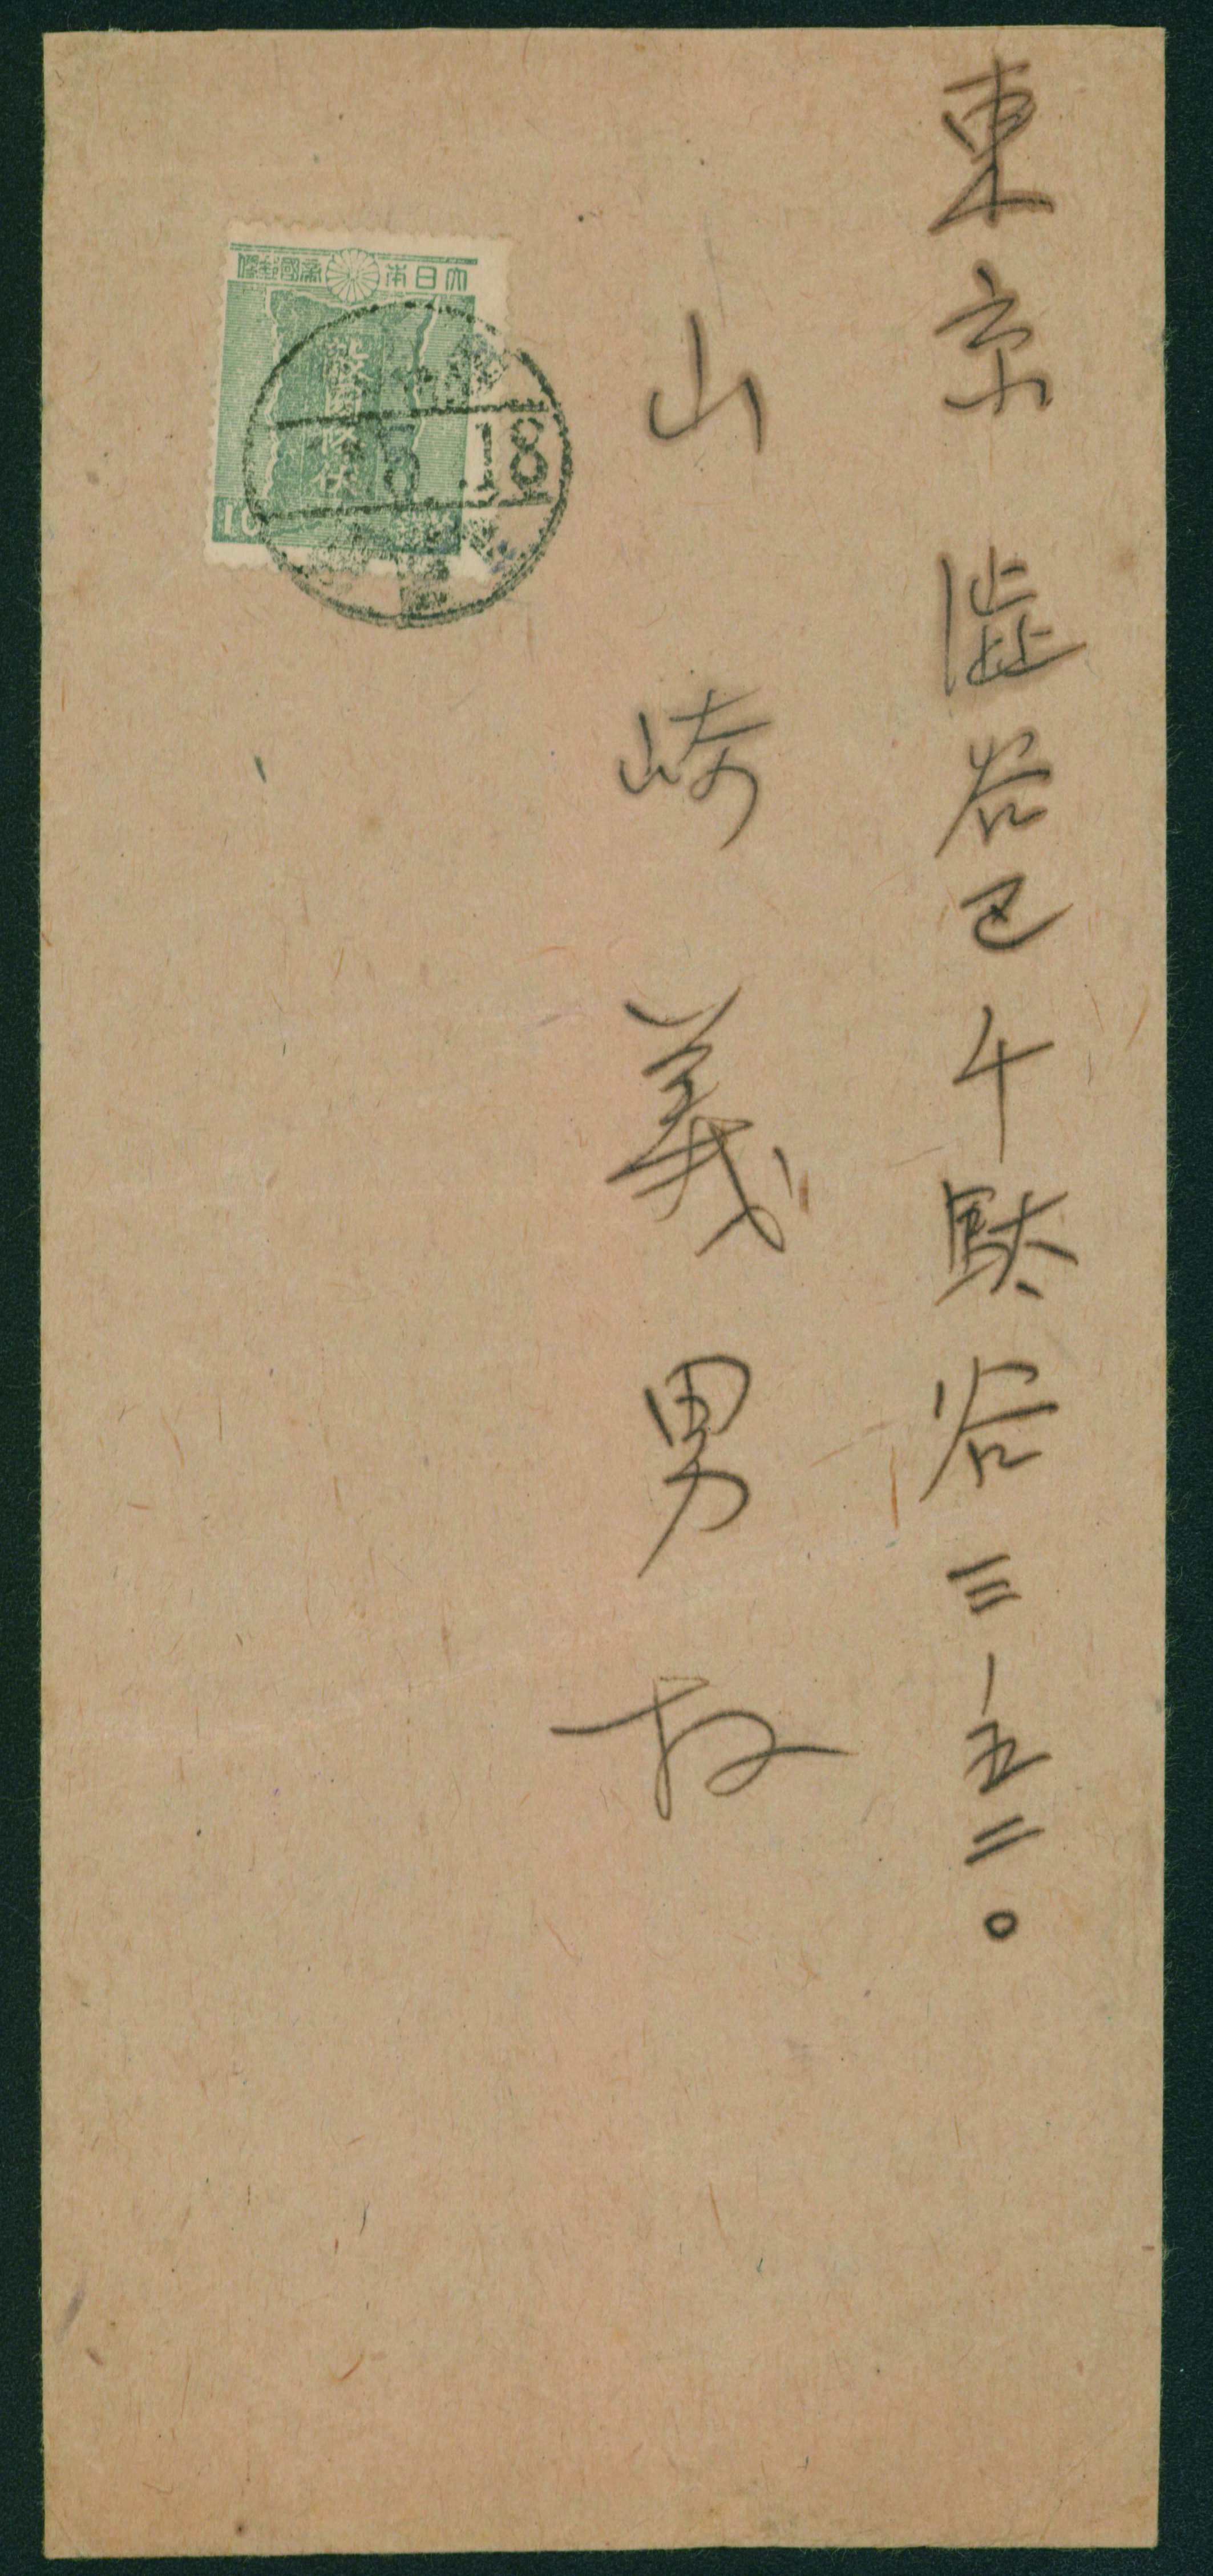 東京澁谷区千駄谷三ノ五二〇
山崎義男様
大日本帝國郵便
敵國降伏
10
18